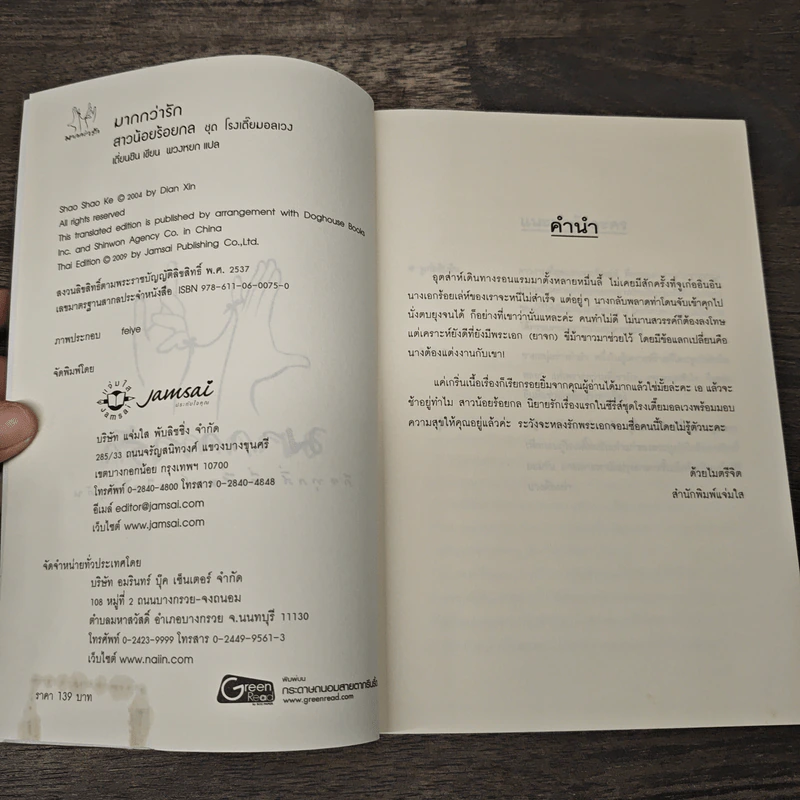 มากกว่ารัก
มากกว่ารัก
สาวน้อยร้อยกล ชุด โรงเตี๊ยมอลเวง
เตี่ยนซิน เขียน พวงหยก แปล
Shao Shao Ke © 2004 by Dian Xin
All rights reserved
This translated edition is published by arrangement with Doghouse Books
Inc. and Shinwon Agency Co. in China
Thai Edition © 2009 by Jamsai Publishing Co.,Ltd.
สงวนลิขสิทธิ์ตามพระราชบัญญัติลิขสิทธิ์ พ.ศ. 2537
เลขมาตรฐานสากลประจำหนังสือ ISBN 978-611-06-0075-0
ภาพประกอบ feiye
จัดพิมพ์โดย
แจ่มใส
Jamsai
Jamsai
บริษัท แจ่มใส พับลิชชิ่ง จำกัด
285/33 ถนนจรัญสนิทวงศ์ แขวงบางขุนศรี
เขตบางกอกน้อย กรุงเทพฯ 10700
โทรศัพท์ 0-2840-4800 โทรสาร 0-2840-4848
อีเมล์ editor@jamsai.com
เว็บไซต์ www.jamsai.com
จัดจำหน่ายทั่วประเทศโดย
บริษัท อมรินทร์ บุ๊ค เซ็นเตอร์ จำกัด
108 หมู่ที่ 2 ถนนบางกรวย-จงถนอม
ตำบลมหาสวัสดิ์ อำเภอบางกรวย จ.นนทบุรี 11130
โทรศัพท์ 0-2423-9999 โทรสาร 0-2449-9561-3
เว็บไซต์ www.naiin.com
ราคา 139 บาท
Green Read
พิมพ์บน
กระดาษถนอมสายตากรีนรี้ด
www.greenread.com
คำนำ
อุตส่าห์เดินทางรอนแรมมาตั้งหลายหมื่นลี้ ไม่เคยมีสักครั้งที่จูเก๋ออินอิน
นางเอกร้อยเล่ห์ของเราจะหนีไม่สำเร็จ แต่อยู่ๆ นางกลับพลาดท่าโดนจับเข้าคุกไป
นั่งตบยุงจนได้ ก็อย่างที่เขาว่านั่นแหละค่ะ คนทำไม่ดี ไม่นานสวรรค์ก็ต้องลงโทษ
แต่เคราะห์ยังดีที่ยังมีพระเอก (ยาจก) ขี่ม้าขาวมาช่วยไว้ โดยมีข้อแลกเปลี่ยนคือ
นางต้องแต่งงานกับเขา!
แค่เกริ่นเนื้อเรื่องก็เรียกรอยยิ้มจากคุณผู้อ่านได้มากแล้วใช่มั้ยล่ะคะ เอ แล้วจะ
ช้าอยู่ทำไม สาวน้อยร้อยกล นิยายรักเรื่องแรกในซีรี่ส์ชุดโรงเตี๊ยมอลเวงพร้อมมอบ
ความสุขให้คุณอยู่แล้วค่ะ ระวังจะหลงรักพระเอกจอมซื่อคนนี้โดยไม่รู้ตัวนะคะ
ด้วยไมตรีจิต
สำนักพิมพ์แจ่มใส